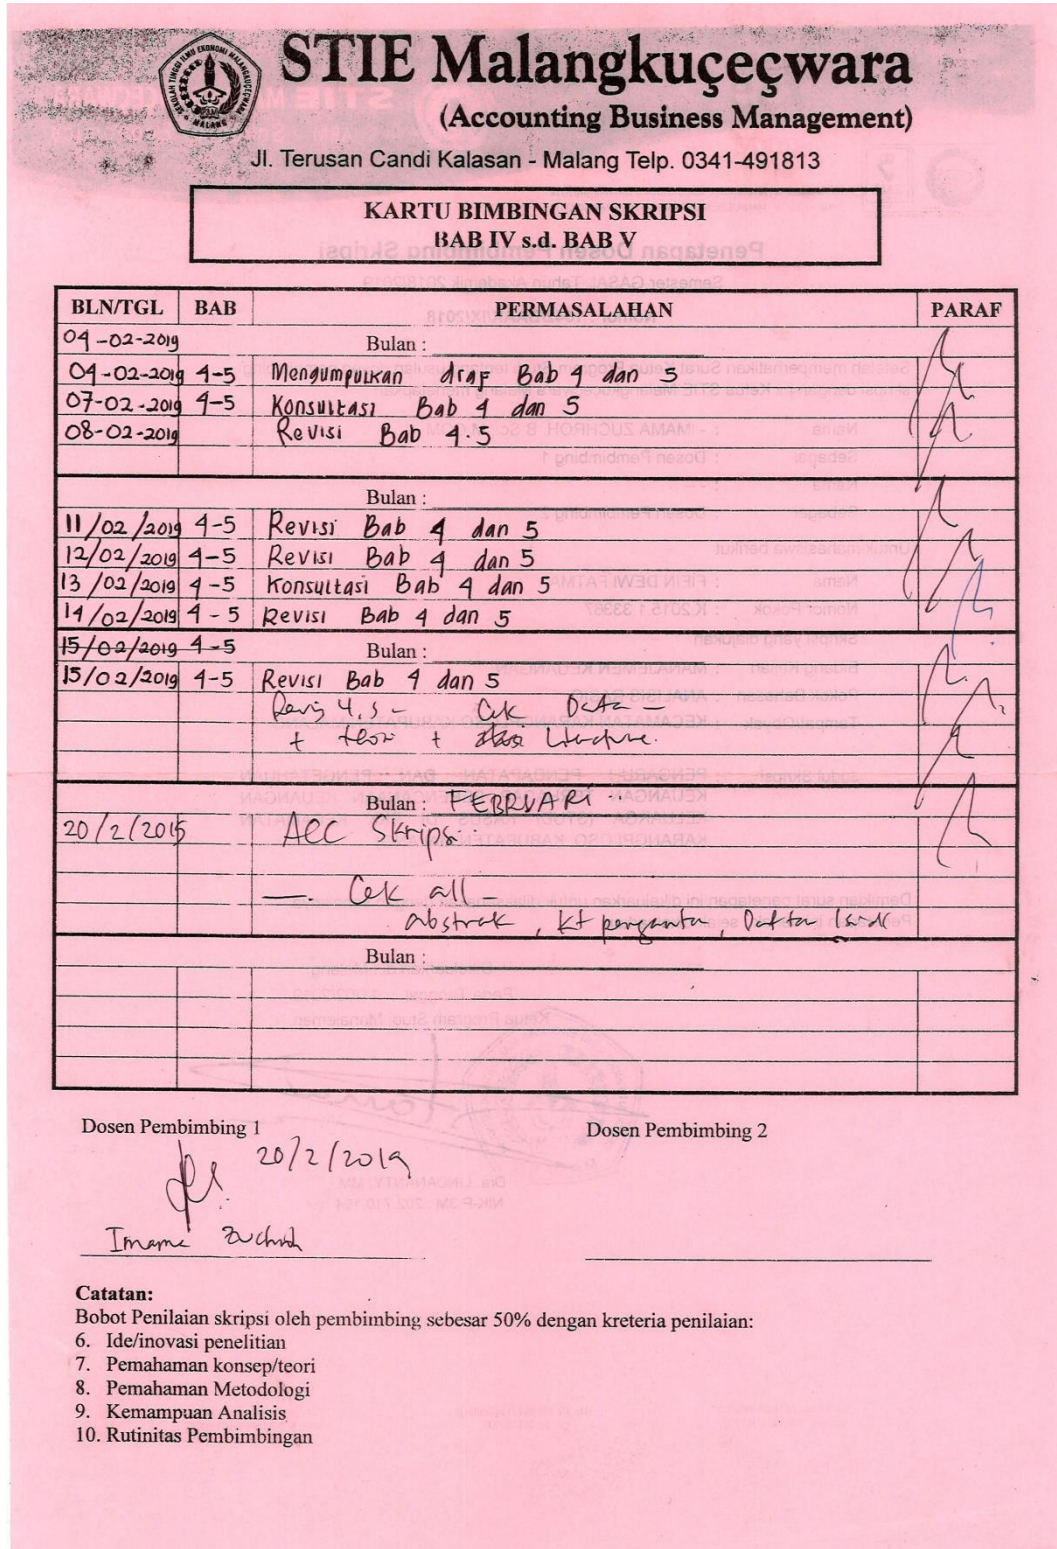 STIE Malangkuçeçwara
(Accounting Business Management)
Jl. Terusan Candi Kalasan - Malang Telp. 0341-491813
KARTU BIMBINGAN SKRIPSI
BAB IV s.d. BAB V
BLN/TGL BAB PERMASALAHAN PARAF
04-02-2019 Bulan :
04-02-2019 4-5 Mengumpulkan draf Bab 4 dan 5
07-02-2019 4-5 Konsultasi Bab 4 dan 5
08-02-2019 Revisi Bab 4.5
Bulan :
11/02/2019 4-5 Revisi Bab 4 dan 5
12/02/2019 4-5 Revisi Bab 4 dan 5
13/02/2019 4-5 Konsultasi Bab 4 dan 5
14/02/2019 4-5 Revisi Bab 4 dan 5
15/02/2019 4-5 Bulan :
15/02/2019 4-5 Revisi Bab 4 dan 5
Revis 4.5 - Cek Data -
+ teori + Literature.
Bulan : FEBRUARI
20/2/2019 ACC Skripsi
Cek all -
abstrak, kt pengantar, Daftar
Bulan :
Dosen Pembimbing 1 Dosen Pembimbing 2
20/2/2019
Imama Zuchroh
Catatan:
Bobot Penilaian skripsi oleh pembimbing sebesar 50% dengan kreteria penilaian:
6. Ide/inovasi penelitian
7. Pemahaman konsep/teori
8. Pemahaman Metodologi
9. Kemampuan Analisis
10. Rutinitas Pembimbingan